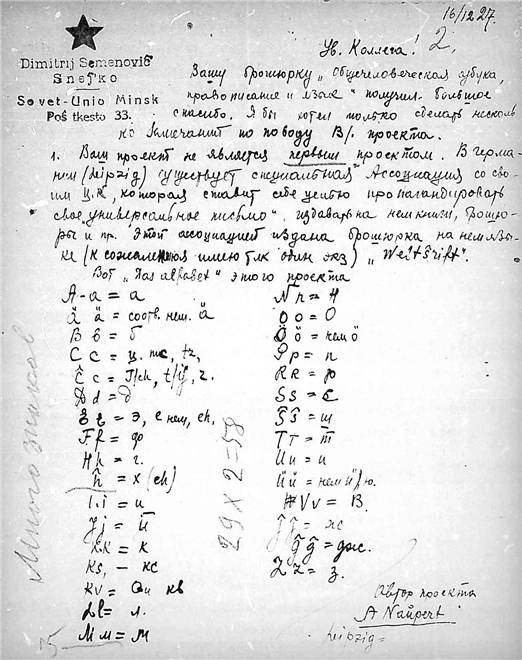 16/12 27.
Ув. Коллега! 2.
Dimitrij Semenoviĉ
Sneĵko
Sovet-Unio Minsk
Poŝtkesto 33.
Вашу брошюрку „Общечеловеческая азбука,
правописание и язык" получил. Большое
спасибо. Я бы хотел только сделать несколь
ко замечаний по поводу В/. проекта.
1. Ваш проект не является первым проектом. В герма-
нии (Leipzig) существует специальная Ассоциация со сво-
им ц.к., которая ставит себе целью пропагандировать
свое „универсальное письмо", издавать на нем книги, брошю-
ры и пр. Этой ассоциацией издана брошюрка на нем. язы-
ке (к сожалению имею тлк один экз) „Weltŝrift".
Вот „Das alfabet" этого проекта
A-a = a
Ä ä = соотв. нем. ä
B b = б
C c = ц, тс, tz,
Ĉ c = Tſch, t/ij, ч.
D d = д
E e = э, е нем, eh,
F f = ф
H h = г.
ĥ = х (ch)
I. i = и
J j = й
KK = к
Ks, - кс
Kv = Qu кв
L l = л.
M м = м
N n = н
O o = О
Ö ö = нем ö
P p = п
R R = р
S s = с
Ŝ ŝ = ш
T т = т
U u = u
Ü ü = нем ü/ю.
V v = В.
Ĵ ĵ = жс
Ĝ ĝ = дж.
Z z = з.
Много знаков
29 x 2 = 58
Автор проекта
A Naŭpert
Leipzig =